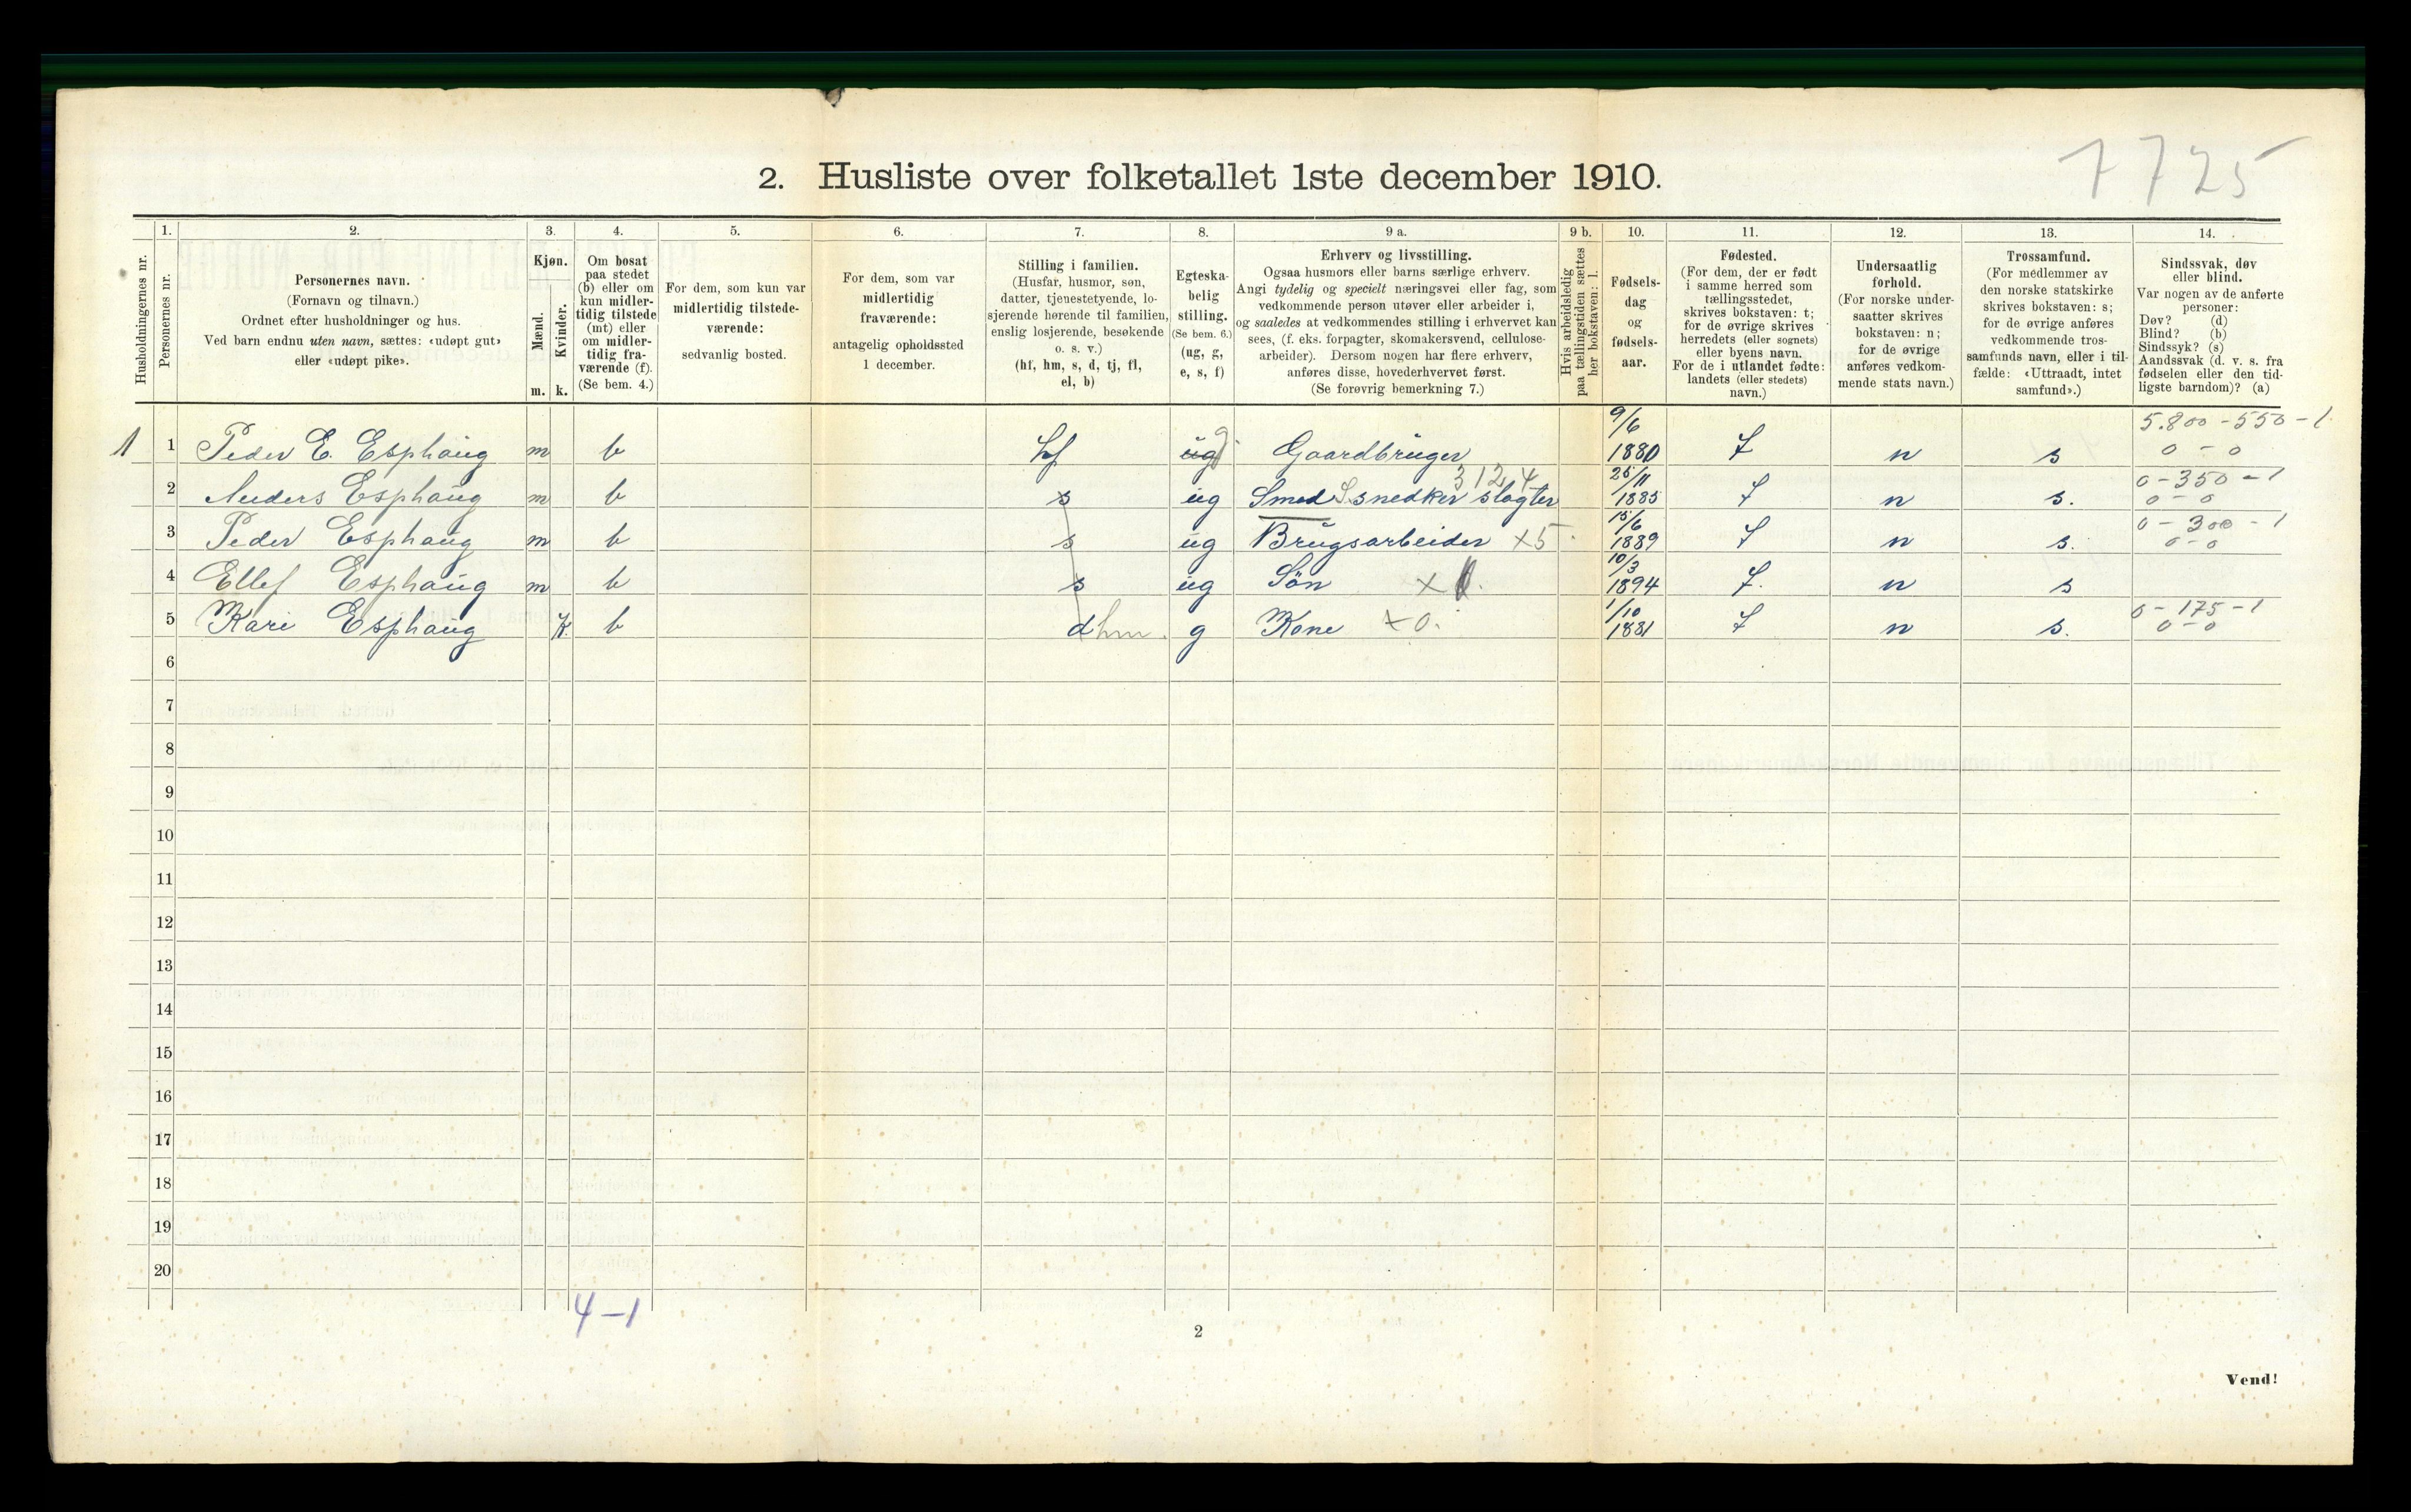 7725
2. Husliste over folketallet 1ste december 1910.
Husholdningernes nr.
1.
Personernes nr.
2.
Personernes navn.
(Fornavn og tilnavn.)
Ordnet efter husholdninger og hus.
Ved barn endnu uten navn, sættes: «udøpt gut»
eller «udøpt pike».
3.
Kjøn.
Mænd.
m.
Kvinder.
k.
4.
Om bosat
paa stedet
(b) eller om
kun midler-
tidig tilstede
(mt) eller
om midler-
tidig fra-
værende (f).
(Se bem. 4.)
5.
For dem, som kun var
midlertidig tilstede-
værende:
sedvanlig bosted.
6.
For dem, som var
midlertidig
fraværende:
antagelig opholdssted
1 december.
7.
Stilling i familien.
(Husfar, husmor, søn,
datter, tjenestetyende, lo-
sjerende hørende til familien,
enslig losjerende, besøkende
o. s. v.)
(hf, hm, s, d, tj, fl,
el, b)
8.
Egteska-
belig
stilling.
(Se bem. 6.)
(ug, g,
e, s, f)
9 a.
Erhverv og livsstilling.
Ogsaa husmors eller barns særlige erhverv.
Angi tydelig og specielt næringsvei eller fag, som
vedkommende person utøver eller arbeider i,
og saaledes at vedkommendes stilling i erhvervet kan
sees, (f. eks. forpagter, skomakersvend, cellulose-
arbeider). Dersom nogen har flere erhverv,
anføres disse, hovederhvervet først.
(Se forøvrig bemerkning 7.)
9 b.
Hvis arbeidsledig
paa tællingstiden sættes
her bokstaven: l.
10.
Fødsels-
dag
og
fødsels-
aar.
11.
Fødested.
(For dem, der er født
i samme herred som
tællingsstedet,
skrives bokstaven: t;
for de øvrige skrives
herredets (eller sognets)
eller byens navn.
For de i utlandet fødte:
landets (eller stedets)
navn.)
12.
Undersaatlig
forhold.
(For norske under-
saatter skrives
bokstaven: n;
for de øvrige
anføres vedkom-
mende stats navn.)
13.
Trossamfund.
(For medlemmer av
den norske statskirke
skrives bokstaven: s;
for de øvrige anføres
vedkommende tros-
samfunds navn, eller i til-
fælde: «Uttraadt, intet
samfund».)
14.
Sindssvak, døv
eller blind.
Var nogen av de anførte
personer:
Døv? (d)
Blind? (b)
Sindssyk? (s)
Aandssvak (d. v. s. fra
fødselen eller den tid-
ligste barndom)? (a)
9/6 5.800 - 550 - 1
1 1 Peder E. Esphaug m b hf ug g. Gaardbruger 1880 n s 0 - 0
312,4 25/11 0 - 350 - 1
2 Anders Esphaug m b s ug Smed snedker slagter 1885 n s. 0 - 0
15/6 0 - 300 - 1
3 Peder Esphaug m b s ug Brugsarbeider x5 1889 n s. 0 - 0
10/3
4 Ellef Esphaug m b s ug Søn x 1894 n s
1/10 0 - 175 - 1
5 Kari Esphaug K. b d hm. g Kone x 0. 1881 n s. 0 - 0
6
7
8
9
10
11
12
13
14
15
16
17
18
19
20
4 - 1
2
Vend!